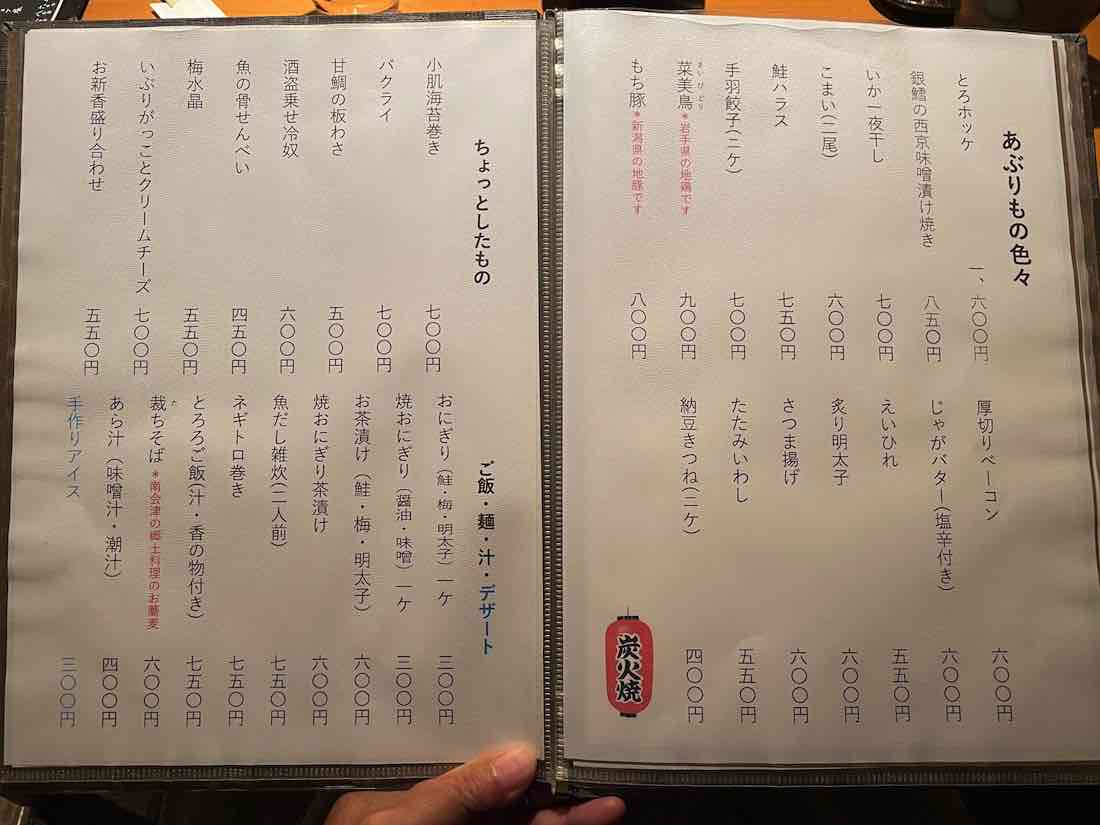 あぶりもの色々
とろホッケ 一、六〇〇円
銀鱈の西京味噌漬け焼き 八五〇円
いか一夜干し 七〇〇円
こまい(二尾) 六〇〇円
鮭ハラス 七五〇円
手羽餃子(二ケ) 七〇〇円
菜美鳥 *岩手県の地鶏です 九〇〇円
さいびどり
もち豚 *新潟県の地豚です 八〇〇円
厚切りベーコン 六〇〇円
じゃがバター(塩辛付き) 六〇〇円
えいひれ 五五〇円
炙り明太子 六〇〇円
さつま揚げ 六〇〇円
たたみいわし 五五〇円
納豆きつね(二ケ) 四〇〇円
炭火焼
ちょっとしたもの
小肌海苔巻き 七〇〇円
バクライ 七〇〇円
甘鯛の板わさ 五〇〇円
酒盗乗せ冷奴 六〇〇円
魚の骨せんべい 四五〇円
梅水晶 五五〇円
いぶりがっことクリームチーズ 七〇〇円
お新香盛り合わせ 五五〇円
ご飯・麺・汁・デザート
おにぎり(鮭・梅・明太子)一ケ 三〇〇円
焼おにぎり(醤油・味噌)一ケ 三〇〇円
お茶漬け(鮭・梅・明太子) 六〇〇円
焼おにぎり茶漬け 六〇〇円
魚だし雑炊(二人前) 七五〇円
ネギトロ巻き 七五〇円
とろろご飯(汁・香の物付き) 七五〇円
裁ちそば *南会津の郷土料理のお蕎麦 六〇〇円
た
あら汁(味噌汁・潮汁) 四〇〇円
手作りアイス 三〇〇円